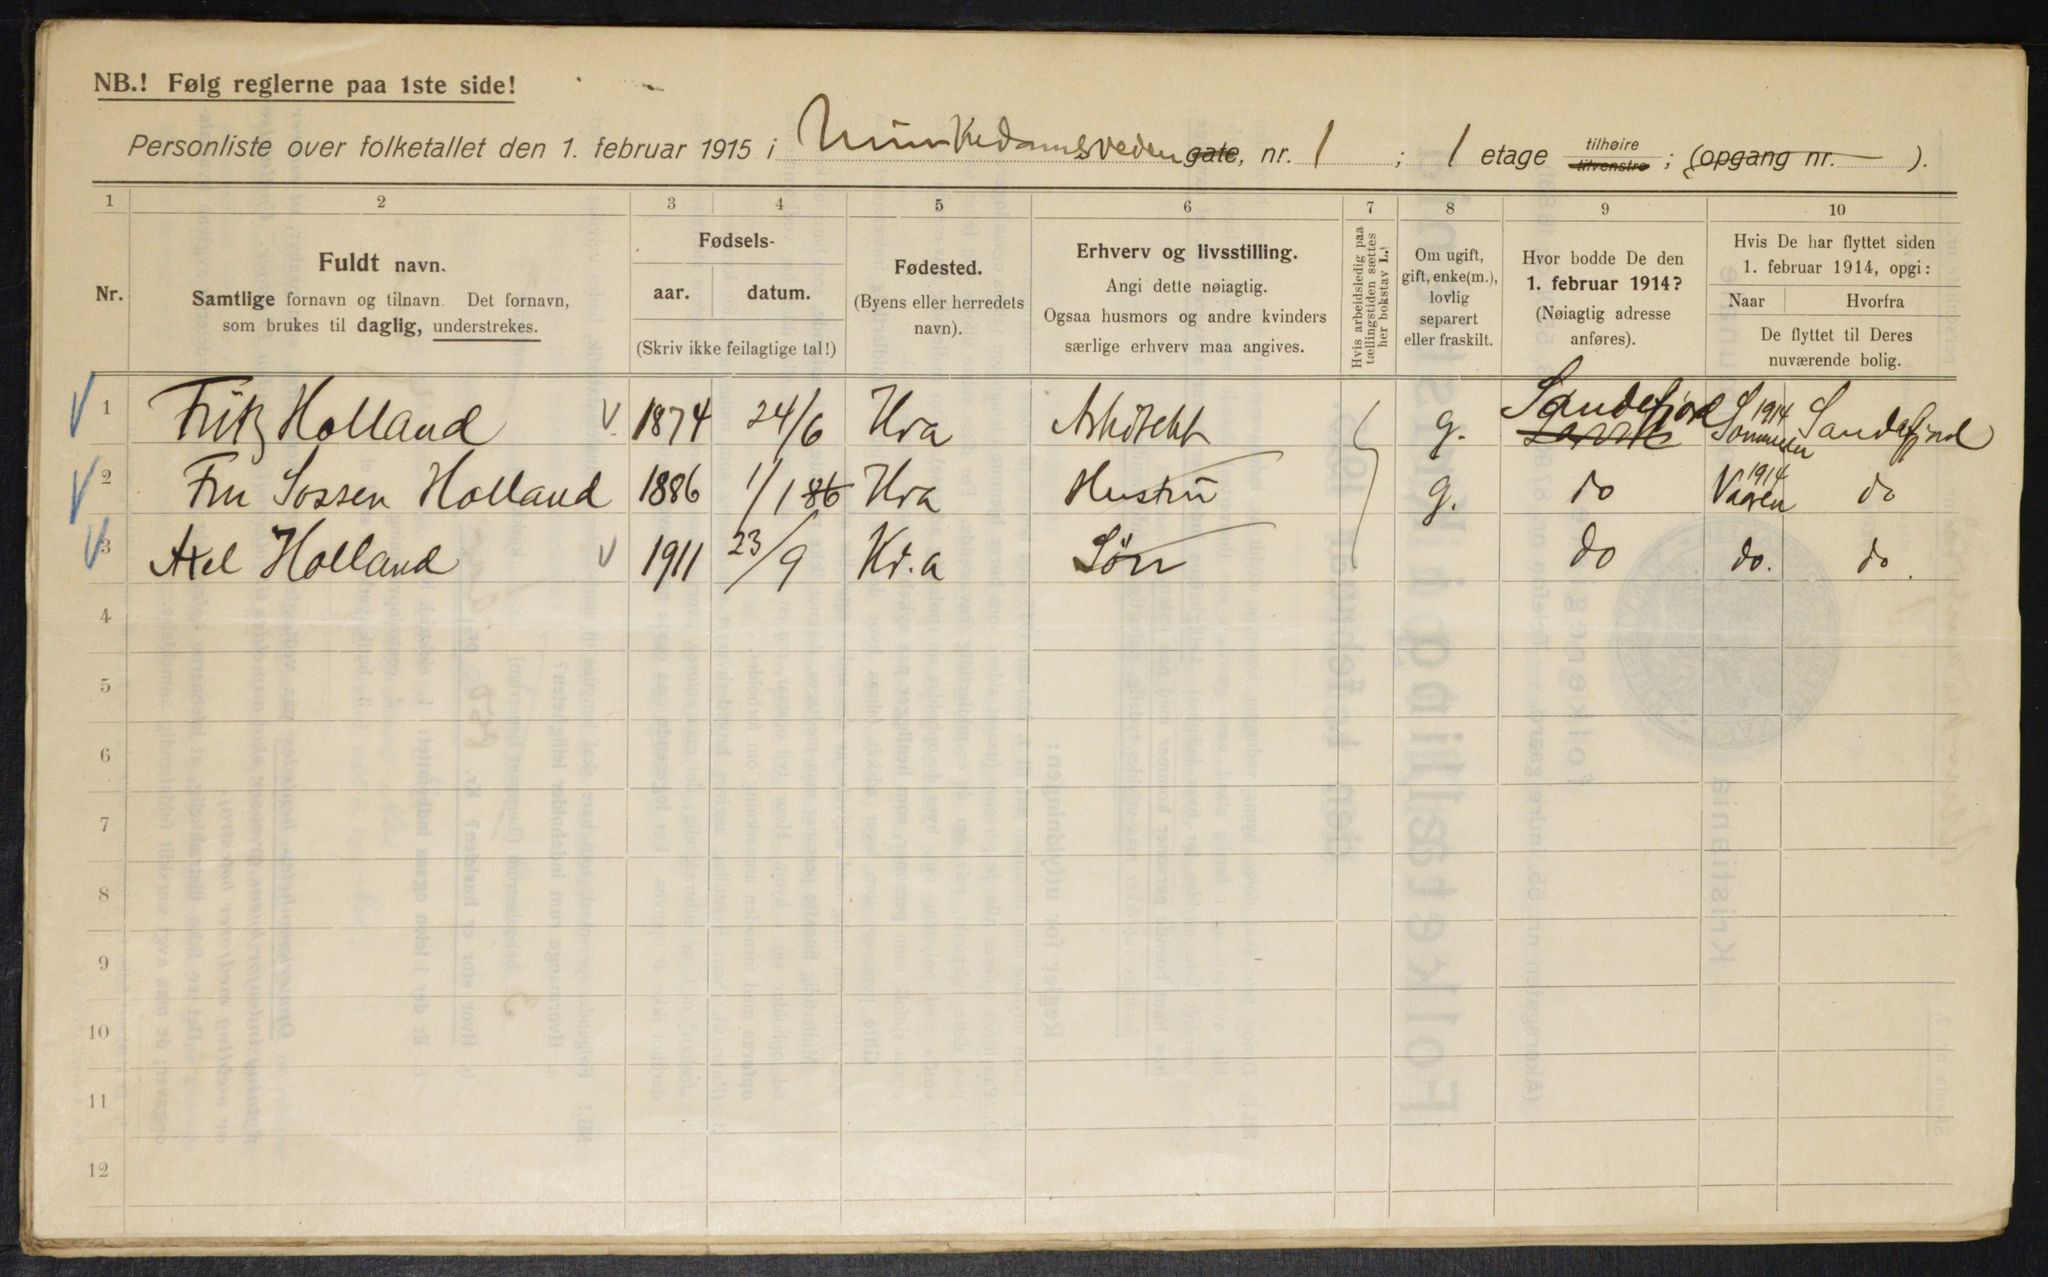 NB.! Følg reglerne paa 1ste side!
Personliste over folketallet den 1. februar 1915 i Munkedamsveien gate, nr. 1 ; 1 etage tilhøire tilvenstre ; (opgang nr. ).
1 2 3 4 5 6 7 8 9 10
Nr.
Fuldt navn.
Samtlige fornavn og tilnavn. Det fornavn,
som brukes til daglig, understrekes.
Fødsels-
aar. datum.
(Skriv ikke feilagtige tal!)
Fødested.
(Byens eller herredets
navn).
Erhverv og livsstilling.
Angi dette nøiagtig.
Ogsaa husmors og andre kvinders
særlige erhverv maa angives.
Hvis arbeidsledig paa
tællingstiden sættes
her bokstav L.!
Om ugift,
gift, enke(m.),
lovlig
separert
eller fraskilt.
Hvor bodde De den
1. februar 1914?
(Nøiagtig adresse
anføres).
Hvis De har flyttet siden
1. februar 1914, opgi:
Naar Hvorfra
De flyttet til Deres
nuværende bolig.
1 Fritz Holland 1874 24/6 Kra Arkitekt g. Sandefjord 1914 Sommeren Sandefjord
2 Fru Sossen Holland 1886 1/1 86 Kra Hustru g. do 1914 Vaaren do
3 Axel Holland 1911 23/9 Kr.a Søn do do. do.
4
5
6
7
8
9
10
11
12